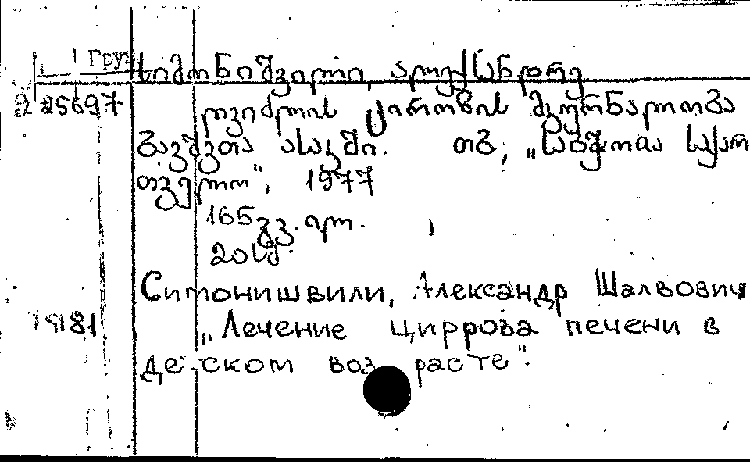 Груз
სიმონიშვილი, ალექსანდრე
2 25697
ღვიძლის ციროზის მკურნალობა
ბავშვთა ასაკში. თბ., „საბჭოთა საქარ
თველო", 1977
165 გვ. ილ.
20 სმ.
Симонишвили, Александр Шалвович
181 „Лечение цирроза печени в
детском возрасте".